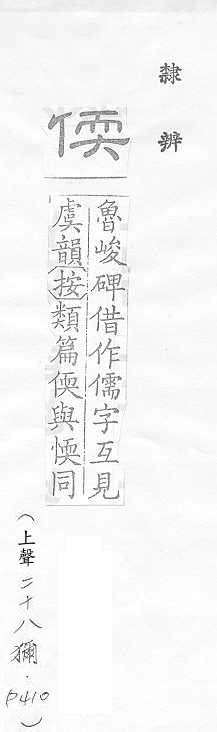 隸辨
偄
魯峻碑借作儒字互見
虞韻按類篇偄與愞同
(上聲二十八獮.P410)